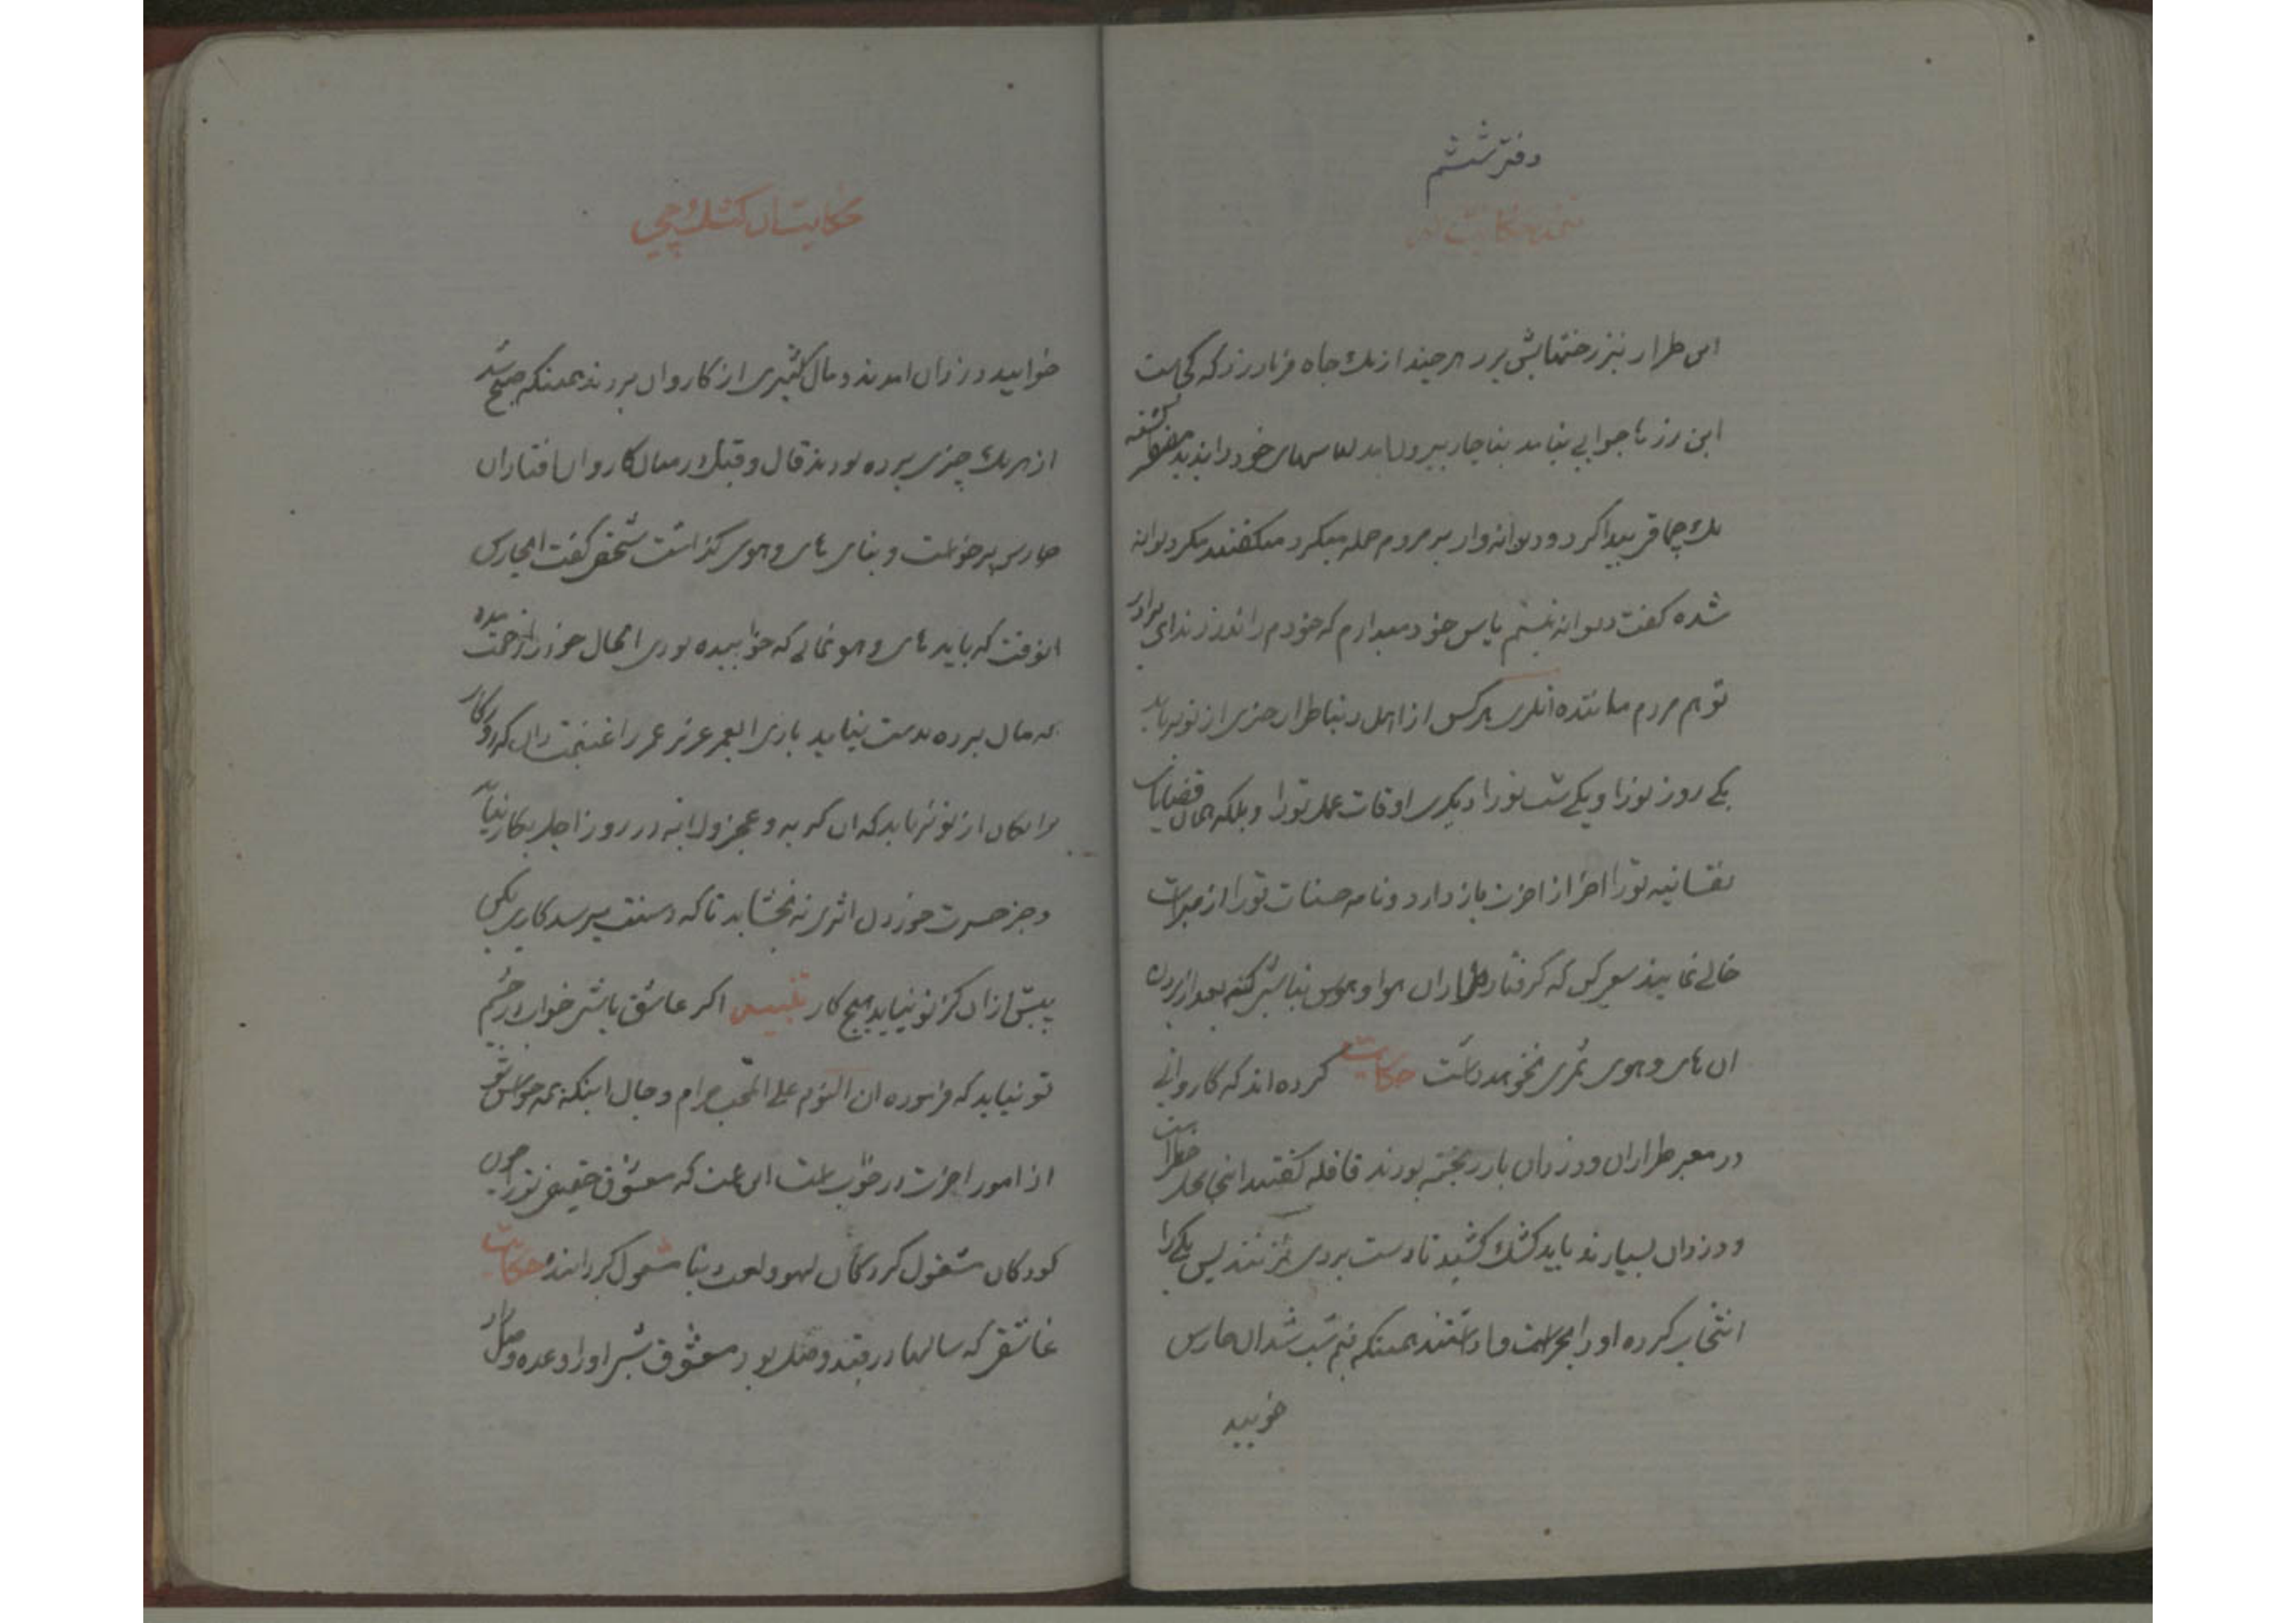 دفتر ششم
حکایت
این طرار نیز رختهایش برد هر چند از یک چاه فریاد زد که کجاست
این دزد تا جوابی نیامد بناچار بیرون امد لباسهای خود را ندید
یک چماقی پیدا کرد و دیوانه وار بر مردم حمله میکرد میگفتند مگر دیوانه
شده گفت دیوانه نیستم پاس خود میدارم که خودم را ندزدند ای برادر
تو هم مردم ماننده انکری هر کس از اهل دنیا طرار چیزی از تو برباید
یکی روز تو را و یکی شب تو را دیگری اوقات عمل تو را و بلکه همان قضایای
نفسانیه تو را اخر از اخرت باز دارد و نامه حسنات تو را از مبرات
خالی نمایند سعی کن که گرفتار طراران هوا و هوس نباشی که بعد از بردن
ان های و هوی ثمری نخواهد داشت حکایت کرده اند که کاروانی
در معبر طراران و دزدان بار ریخته بودند قافله گفتند اینجا محل خطر است
و دزدان بسیارند باید کشک کشید تا دست بردی نزنند پس یکی را
انتخاب کرده او را بحراست وا داشتند همینکه نیم شب شد ان حارس
خوابید
حکایت ان کشک چی
خوابید دزدان امدند و مال کثیری از کاروان بردند همینکه صبح شد
از هر یک چیزی برده بودند قال و قیل در میان کاروان افتاد ان
حارس بر خواست و بنای های و هوی گذاشت شخصی گفت ای حارس
انوقت که باید های و هو نمائی که خوابیده بودی الحال خود را زحمت مده
که مال برده بدست نیاید باری ای عزیز عمر را غنیمت دان که
از تو بر نیاید که ان گریه و عجز و لابه در روز اجل بکار نیاید
و جز حسرت خوردن اثری نه بخشاید تا که دستت میرسد کاری بکن
پیش از ان کز تو نیاید هیچ کار تنبیه اگر عاشق باشی خواب در چشم
تو نیاید که فرموده ان النوم علی المحب حرام و حال اینکه همه حواس تو
از امور اخرت در خواب است این است که معشوق حقیقی تو را چون
کودکان مشغول کردکان لهو و لعب دنیا مشغول کرداند حکایت
عاشقی که سالها در قید وصل بود معشوق شبی او را وعده وصل داد